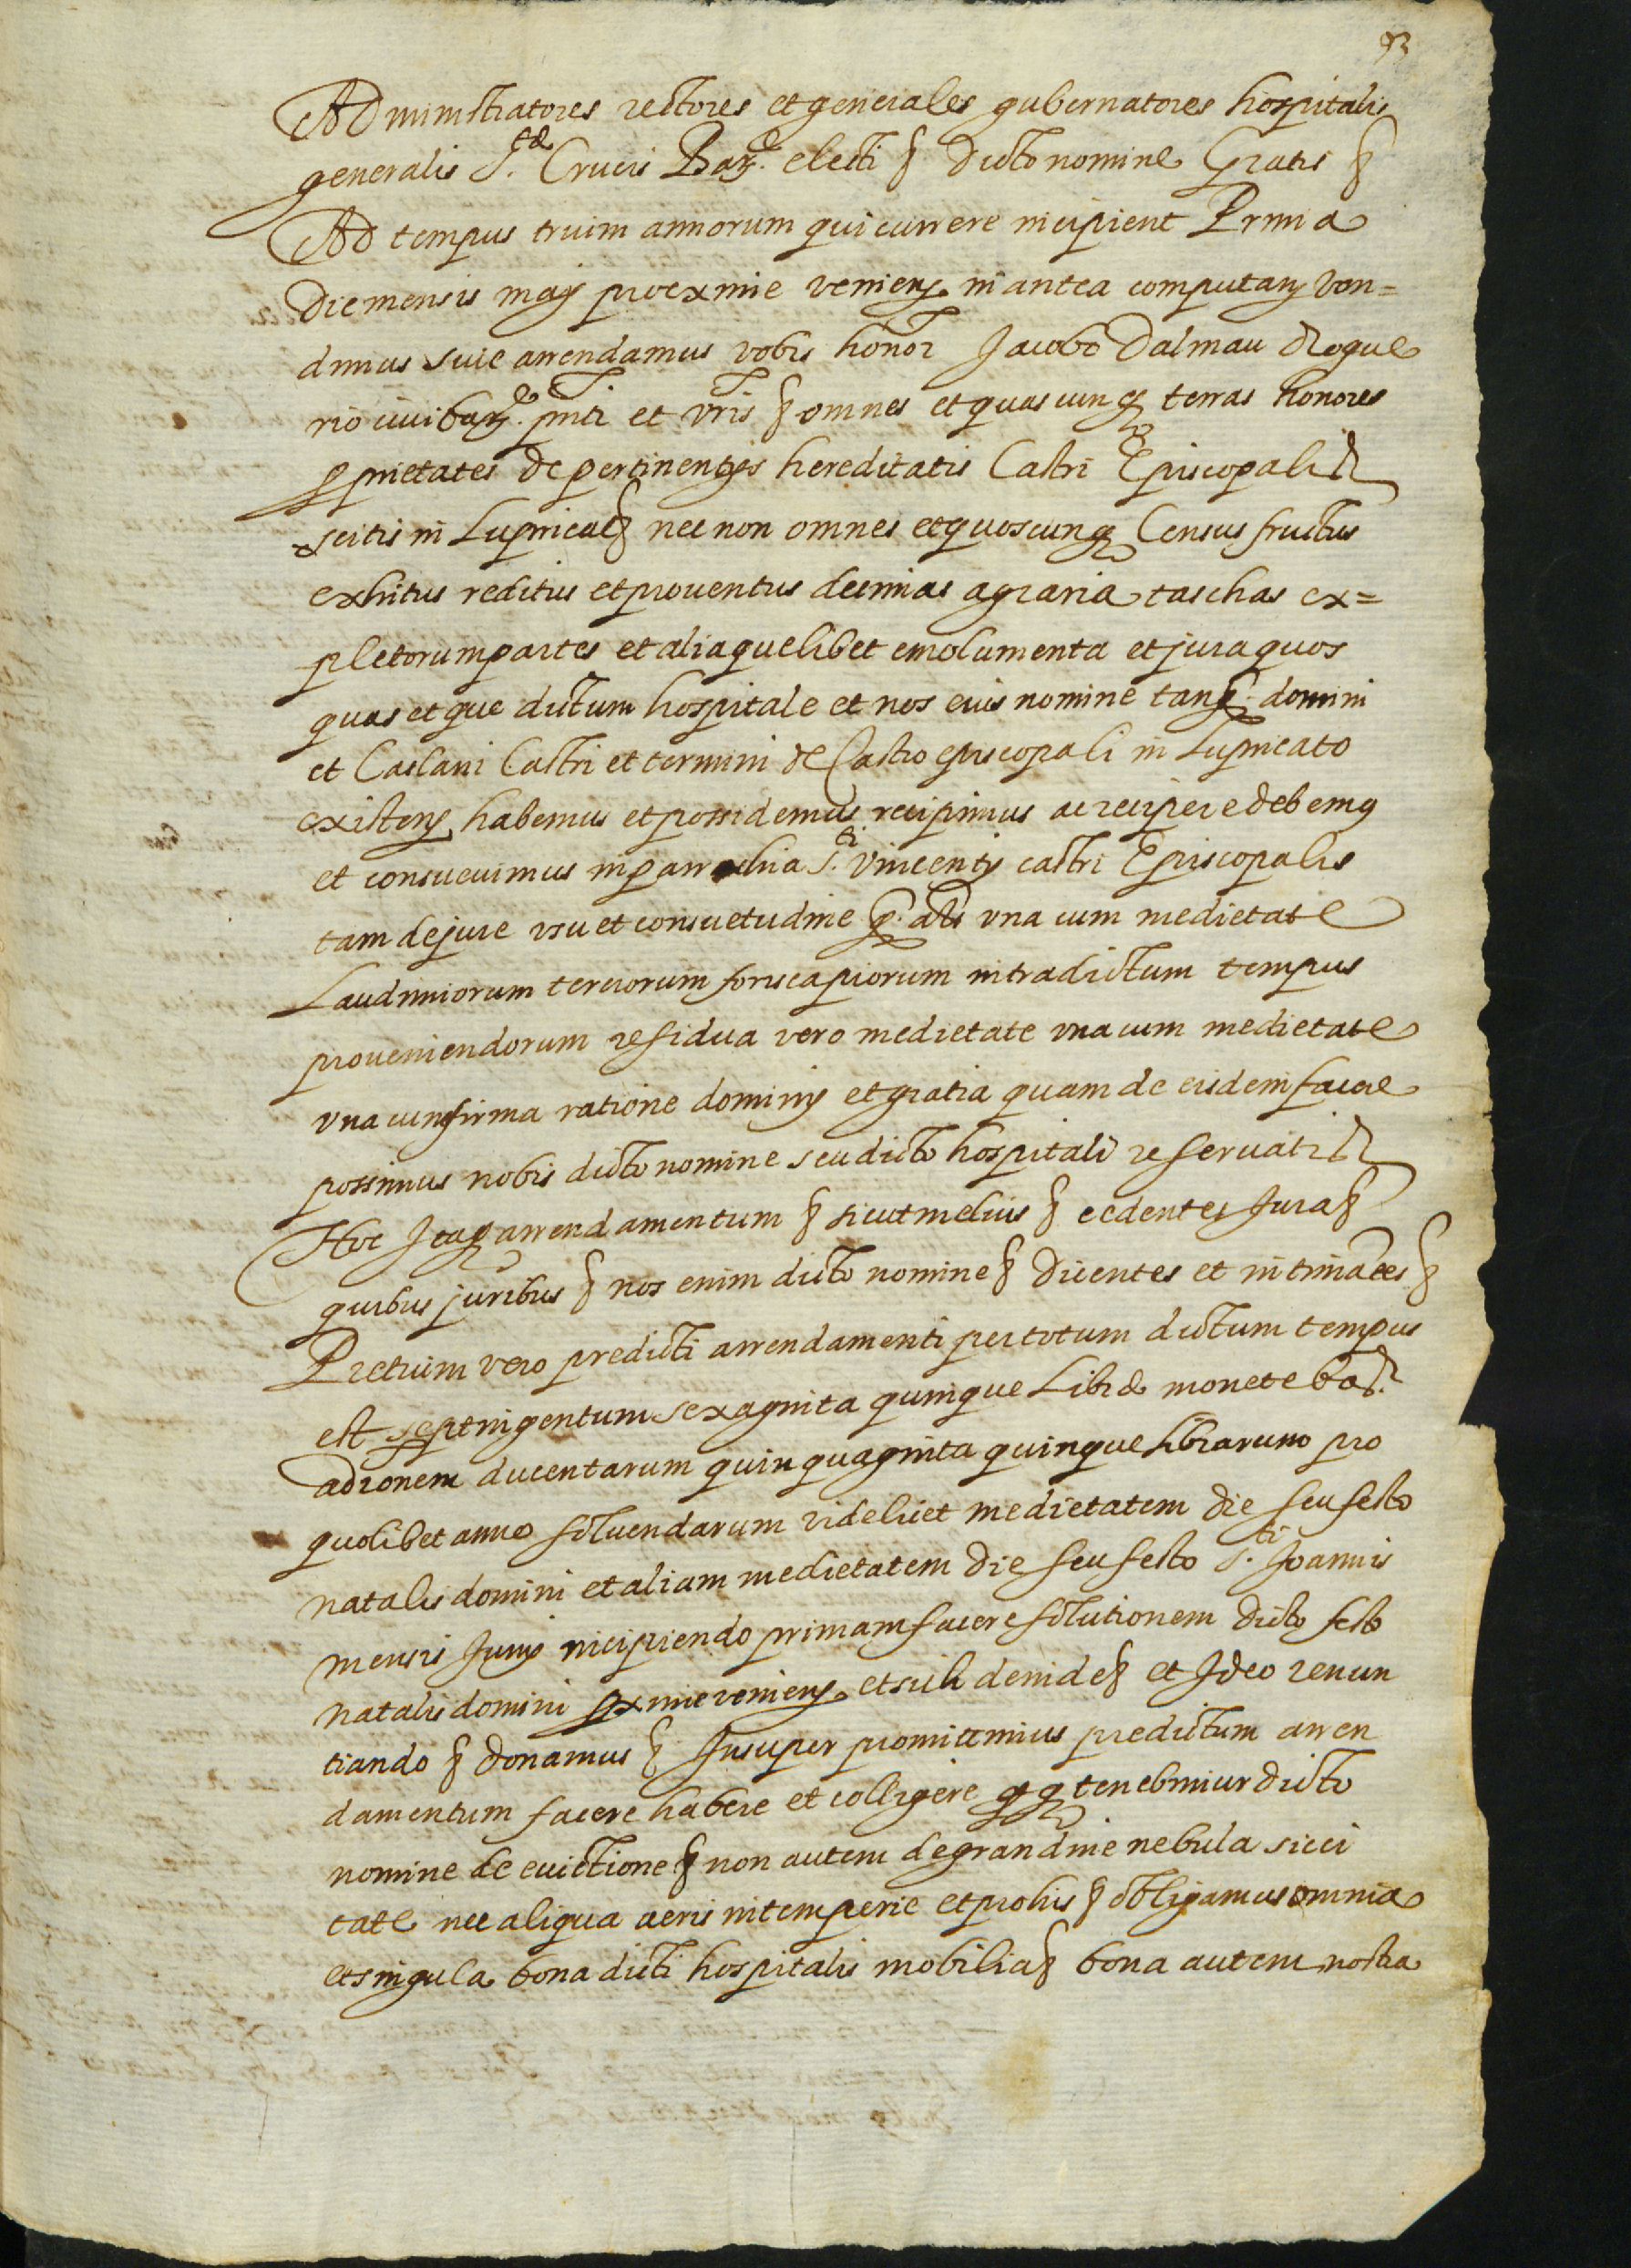 93
Administratores rectores et generales gubernatores hospitalis
generalis S.te Crucis Bar.e electi § dicto nomine Gratis §
Ad tempus trium annorum qui currere incipient Prima
die mensis maij proexime venienȝ in antea computanȝ ven=
dimus sive arrendamus vobis honor Jacobo Dalmau drogue
rio civi barȝ.e pnti et vris § omnes et quascunqȝ terras honores
ꝓprietates de pertinentijs hereditatis Castri Episcopalis
scitis in Lupricat § nec non omnes et quoscunqȝ Census fructus
exhitus reditus et proventus decimas agraria taschas ex=
pletorum partes et alia quelibet emolumenta et jura quos
quas et que dictum hospitale et nos eius nomine tanqȝ. domini
et Caslani Castri et termini de Castro episcopali in Lupricato
existenȝ habemus et possidemus recipimus ac recipere debemꝰ
et consuevimus in parrochia S.ti Vincentij castri Episcopalis
tam de jure usu et consuetudine qȝ. als una cum medietate
Laudimiorum terciorum foriscapiorum intra dictum tempus
proveniendorum residua vero medietate una cum medietate
una cum firma ratione dominij et gratia quam de eisdem facere
possimus nobis dicto nomine seu dicto hospitali reservatis
Hoc Itaqȝ arrendamentum § sicut melius § cedentes Jura §
quibus juribus § nos enim dicto nomine § dicentes et intimātes §
Pretium vero predicti arrendamenti per totum dictum tempus
est septingentum sexaginta quinque Libre monete bar.
ad ronem ducentarum quinquaginta quinque librarum pro
quolibet anno solvendarum videlicet medietatem die seu festo
natalis domini et aliam medietatem die seu festo S.ti Joannis
mensis Junij incipiendo primam facere solutionem dicto festo
natalis domini ꝓxime venienȝ. et sich deinde § et Ideo renun
tiando § donamus § Insuper promittimus predictum arren
damentum facere habere et colligere qȝ qȝ tenebimur dicto
nomine de evictione § non autem de grandine nebula sicci
tate nec aliqua aeris intemperie et pro his § obligamus omnia
et singula bona dicti hospitalis mobilia § bona autem nostra